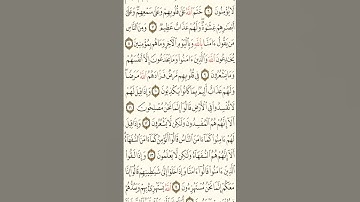 لَا يُؤْمِنُونَ ٦ خَتَمَ ٱللَّهُ عَلَىٰ قُلُوبِهِمْ وَعَلَىٰ سَمْعِهِمْ وَعَلَىٰٓ
أَبْصَٰرِهِمْ غِشَٰوَةٌ وَلَهُمْ عَذَابٌ عَظِيمٌ ٧ وَمِنَ ٱلنَّاسِ
مَن يَقُولُ ءَامَنَّا بِٱللَّهِ وَبِٱلْيَوْمِ ٱلْءَاخِرِ وَمَا هُم بِمُؤْمِنِينَ ٨
يُخَٰدِعُونَ ٱللَّهَ وَٱلَّذِينَ ءَامَنُوا۟ وَمَا يَخْدَعُونَ إِلَّآ أَنفُسَهُمْ
وَمَا يَشْعُرُونَ ٩ فِى قُلُوبِهِم مَّرَضٌ فَزَادَهُمُ ٱللَّهُ مَرَضًا
وَلَهُمْ عَذَابٌ أَلِيمٌۢ بِمَا كَانُوا۟ يَكْذِبُونَ ١٠ وَإِذَا قِيلَ لَهُمْ
لَا تُفْسِدُوا۟ فِى ٱلْأَرْضِ قَالُوٓا۟ إِنَّمَا نَحْنُ مُصْلِحُونَ ١١
أَلَآ إِنَّهُمْ هُمُ ٱلْمُفْسِدُونَ وَلَٰكِن لَّا يَشْعُرُونَ ١٢ وَإِذَا قِيلَ
لَهُمْ ءَامِنُوا۟ كَمَآ ءَامَنَ ٱلنَّاسُ قَالُوٓا۟ أَنُؤْمِنُ كَمَآ ءَامَنَ ٱلسُّفَهَآءُ
أَلَآ إِنَّهُمْ هُمُ ٱلسُّفَهَآءُ وَلَٰكِن لَّا يَعْلَمُونَ ١٣ وَإِذَا لَقُوا۟
ٱلَّذِينَ ءَامَنُوا۟ قَالُوٓا۟ ءَامَنَّا وَإِذَا خَلَوْا۟ إِلَىٰ شَيَٰطِينِهِمْ قَالُوٓا۟ إِنَّا
مَعَكُمْ إِنَّمَا نَحْنُ مُسْتَهْزِءُونَ ١٤ ٱللَّهُ يَسْتَهْزِئُ بِهِمْ وَيَمُدُّهُمْ